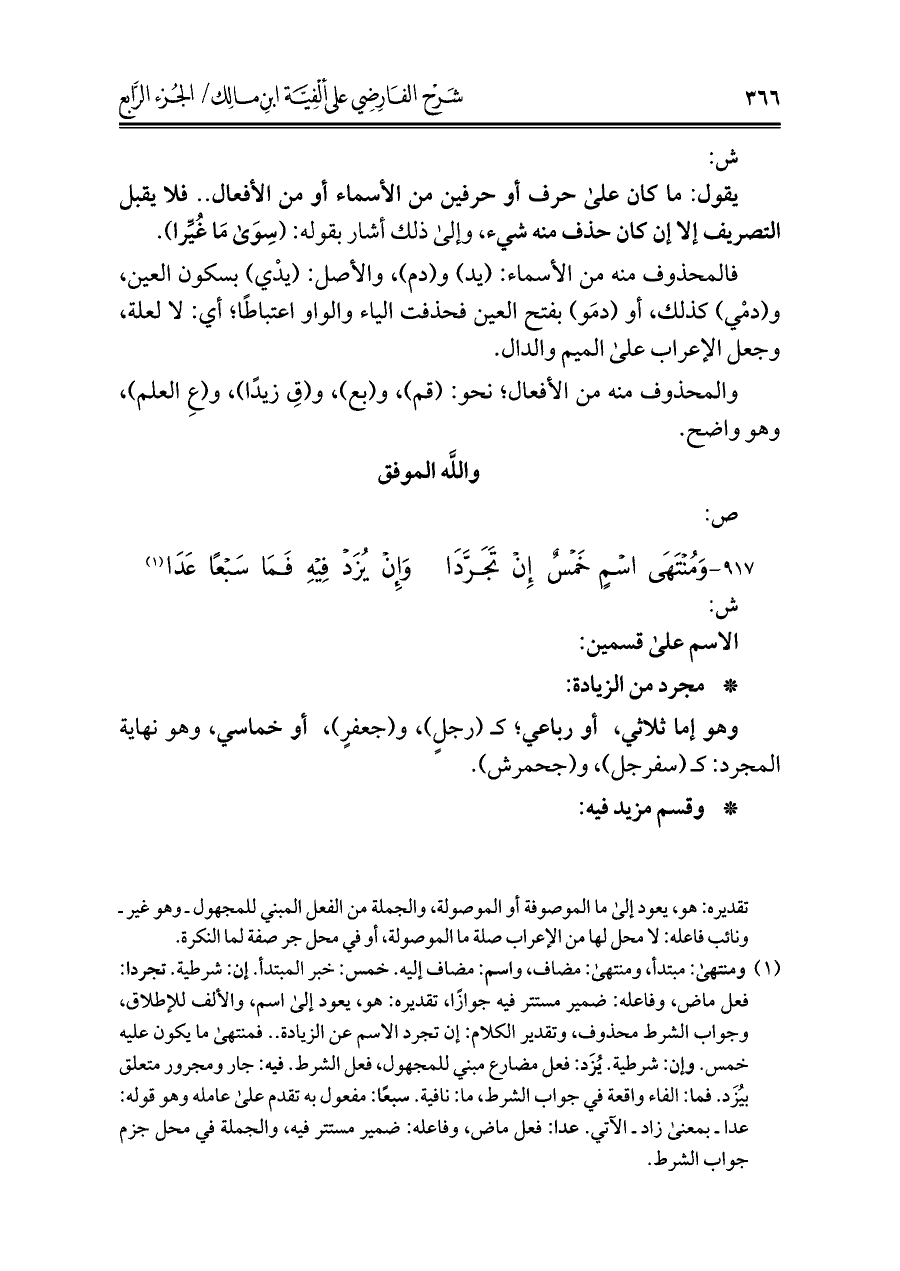 ٣٦٦ شَرْح الفَارِضِي عَلى ألْفِيَّة ابنِ مَالِك/ الجُزء الرَّابع
ش:
يقول: ما كان علىٰ حرف أو حرفين من الأسماء أو من الأفعال.. فلا يقبل
التصريف إلا إن كان حذف منه شيء، وإلىٰ ذلك أشار بقوله: (سِوَىٰ مَا غُيِّرا).
فالمحذوف منه من الأسماء: (يد) و(دم)، والأصل: (يدْي) بسكون العين،
و(دمْي) كذلك، أو (دمَو) بفتح العين فحذفت الياء والواو اعتباطًا؛ أي: لا لعلة،
وجعل الإعراب علىٰ الميم والدال.
والمحذوف منه من الأفعال؛ نحو: (قم)، و(بع)، و(قِ زيدًا)، و(عِ العلم)،
وهو واضح.
واللَّه الموفق
ص:
٩١٧-وَمُنْتَهَى اسْمٍ خَمْسٌ إِنْ تَجَرَّدَا وَإِنْ يُزَدْ فِيْهِ فَمَا سَبْعًا عَدَا(١)
ش:
الاسم علىٰ قسمين:
* مجرد من الزيادة:
وهو إما ثلاثي، أو رباعي؛ كـ (رجلٍ)، و(جعفرٍ)، أو خماسي، وهو نهاية
المجرد: كـ (سفرجل)، و(جحمرش).
* وقسم مزيد فيه:
تقديره: هو، يعود إلىٰ ما الموصوفة أو الموصولة، والجملة من الفعل المبني للمجهول ـ وهو غير ـ
ونائب فاعله: لا محل لها من الإعراب صلة ما الموصولة، أو في محل جر صفة لما النكرة.
(١) ومنتهىٰ: مبتدأ، ومنتهىٰ: مضاف، واسم: مضاف إليه. خمس: خبر المبتدأ. إن: شرطية. تجردا:
فعل ماض، وفاعله: ضمير مستتر فيه جوازًا، تقديره: هو، يعود إلىٰ اسم، والألف للإطلاق،
وجواب الشرط محذوف، وتقدير الكلام: إن تجرد الاسم عن الزيادة.. فمنتهىٰ ما يكون عليه
خمس. وإن: شرطية. يُزَد: فعل مضارع مبني للمجهول، فعل الشرط. فيه: جار ومجرور متعلق
بيُزَد. فما: الفاء واقعة في جواب الشرط، ما: نافية. سبعًا: مفعول به تقدم علىٰ عامله وهو قوله:
عدا ـ بمعنىٰ زاد ـ الآتي. عدا: فعل ماض، وفاعله: ضمير مستتر فيه، والجملة في محل جزم
جواب الشرط.